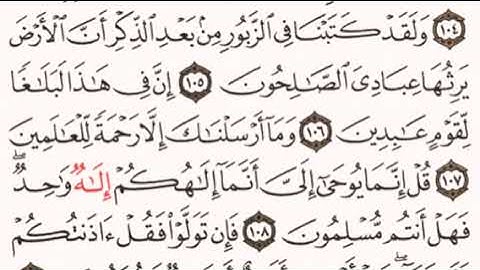 ١٠٤ وَلَقَدْ كَتَبْنَا فِى ٱلزَّبُورِ مِنۢ بَعْدِ ٱلذِّكْرِ أَنَّ ٱلْأَرْضَ
يَرِثُهَا عِبَادِىَ ٱلصَّٰلِحُونَ ١٠٥ إِنَّ فِى هَٰذَا لَبَلَٰغًا
لِّقَوْمٍ عَٰبِدِينَ ١٠٦ وَمَآ أَرْسَلْنَٰكَ إِلَّا رَحْمَةً لِّلْعَٰلَمِينَ
١٠٧ قُلْ إِنَّمَا يُوحَىٰٓ إِلَىَّ أَنَّمَآ إِلَٰهُكُمْ إِلَٰهٌ وَٰحِدٌ ۖ
فَهَلْ أَنتُم مُّسْلِمُونَ ١٠٨ فَإِن تَوَلَّوْا۟ فَقُلْ ءَاذَنتُكُمْ